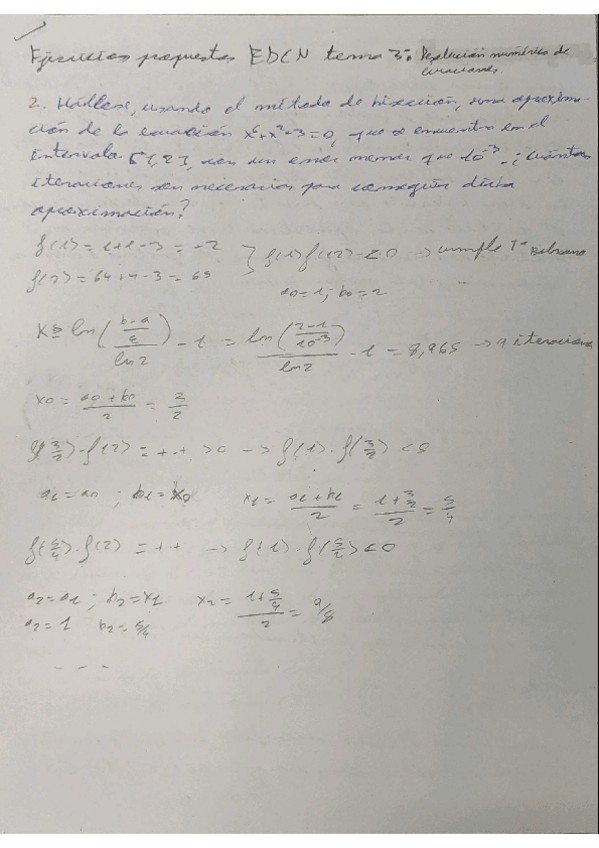 Ejercicios propuestos EDCN tema 3: Resolución numérica de
ecuaciones.
2. Hállese, usando el método de bisección, una aproxima-
ción de la ecuación x⁶+x²-3=0, que se encuentra en el
intervalo [1,2], con un error menor que 10⁻³. ¿Cuántas
iteraciones son necesarias para conseguir dicha
aproximación?
f(1) = 1+1-3 = -2
f(2) = 64+4-3 = 65
} f(1) f(2) < 0 → cumple Tª Bolzano
a0 = 1; b0 = 2
K ≥ ln((b-a)/ε)/ln2 - 1 = ln((2-1)/10⁻³)/ln2 - 1 = 8,965 → 9 iteraciones
x0 = (a0+b0)/2 = 3/2
f(3/2)·f(2) = +·+ > 0 → f(1)·f(3/2) < 0
a1 = a0 ; b1 = x0 x1 = (a1+b1)/2 = (1+3/2)/2 = 5/4
f(5/4)·f(2) = ++ → f(1)·f(5/4) < 0
a2 = a1 ; b2 = x1 x2 = (1+5/4)/2 = 9/8
a2 = 1 b2 = 5/4
- - -